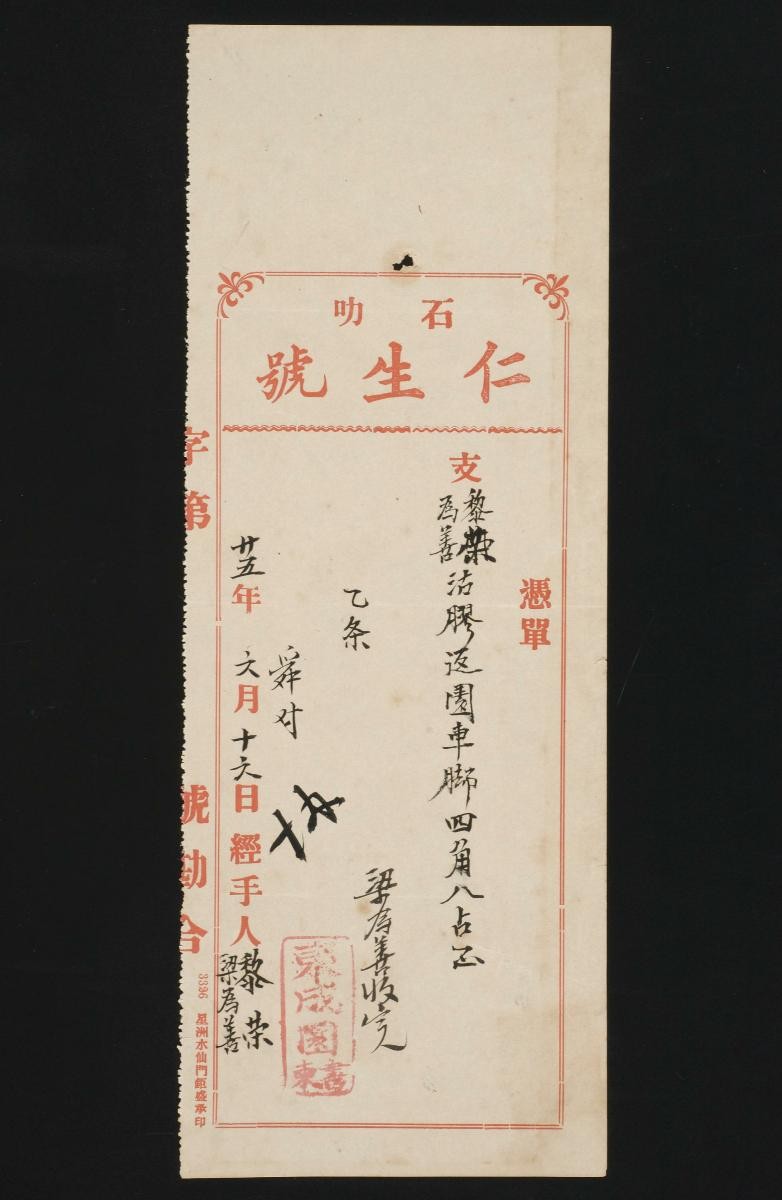 石叻
仁生號
憑單
支
黎榮
為善
沽膠返園車脚四角八占正
梁為善收完
乙条
舜对
廿五年六月十六日經手人
黎荣
梁為善
東成園
書柬
字第
號勘合
3396 星洲水仙門鉅盛承印